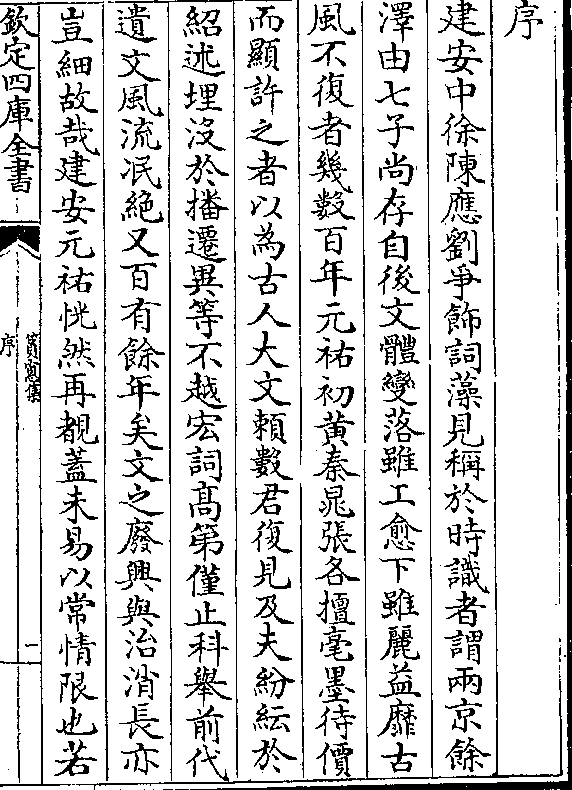 序
建安中徐陳應劉爭飾詞藻見稱於時識者謂兩京餘
澤由七子尚存自後文體變落雖工愈下雖麗益靡古
風不復者幾數百年元祐初黄秦晁張各擅毫墨待價
而顯許之者以為古人大文賴數君復見及夫紛紜於
紹述埋沒於播遷異等不越宏詞髙第僅止科舉前代
遺文風流泯絶又百有餘年矣文之廢興與治消長亦
豈細故哉建安元祐恍然再覩蓋未易以常情限也若
欽定四庫全書
序
一